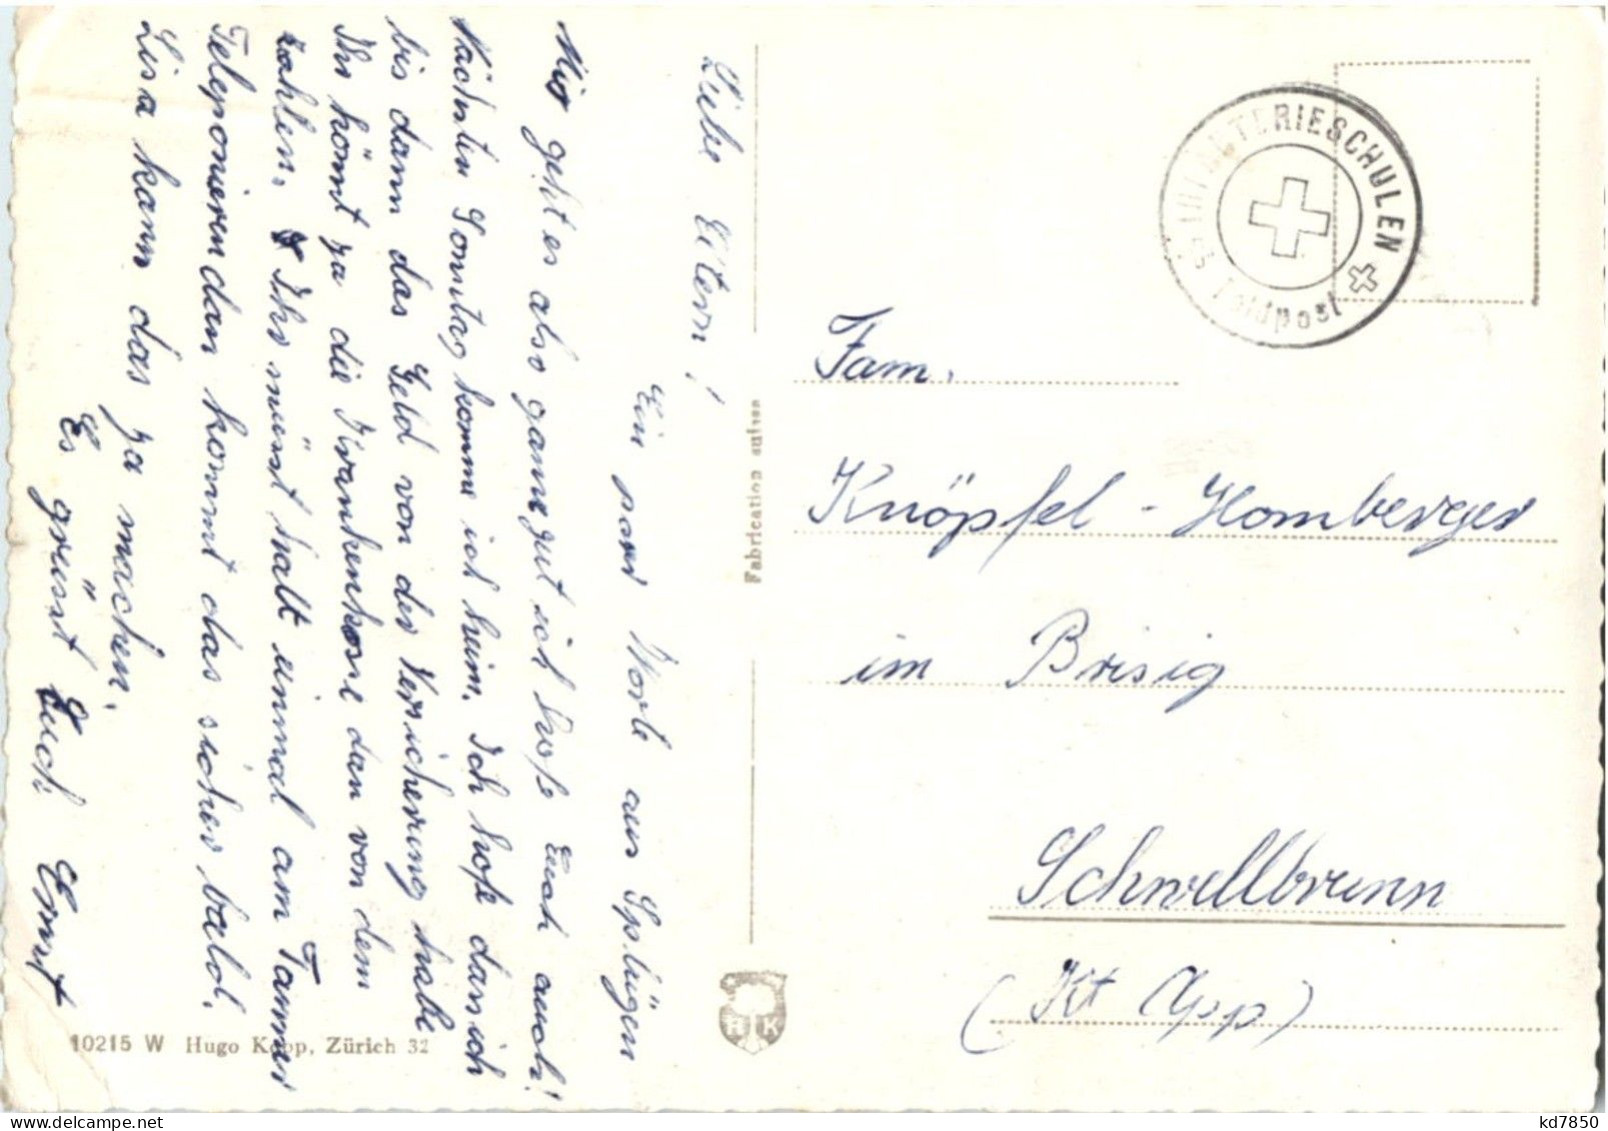 Liebe Eltern!
Ein paar Worte aus Splügen
Mir geht es also ganz gut ich hoffe Euch auch!
Nächsten Sonntag komme ich heim. Ich hoffe dass ich
bis dann das Geld von der Versicherung habe
Ihr könnt ja die Krankenkasse dan von dem
zahlen. Ihr müsst halt einmal am Tanner
Teleponieren dan kommt das sicher bald.
Lisa kann das ja machen.
Es grüsst Euch Ernst
10215 W Hugo Kopp, Zürich 32
Fabrication suisse
HK
INFANTERIESCHULEN
Feldpost
Fam.
Knöpfel - Homberger
im Brisig
Schwellbrunn
(Kt App)
kd7850